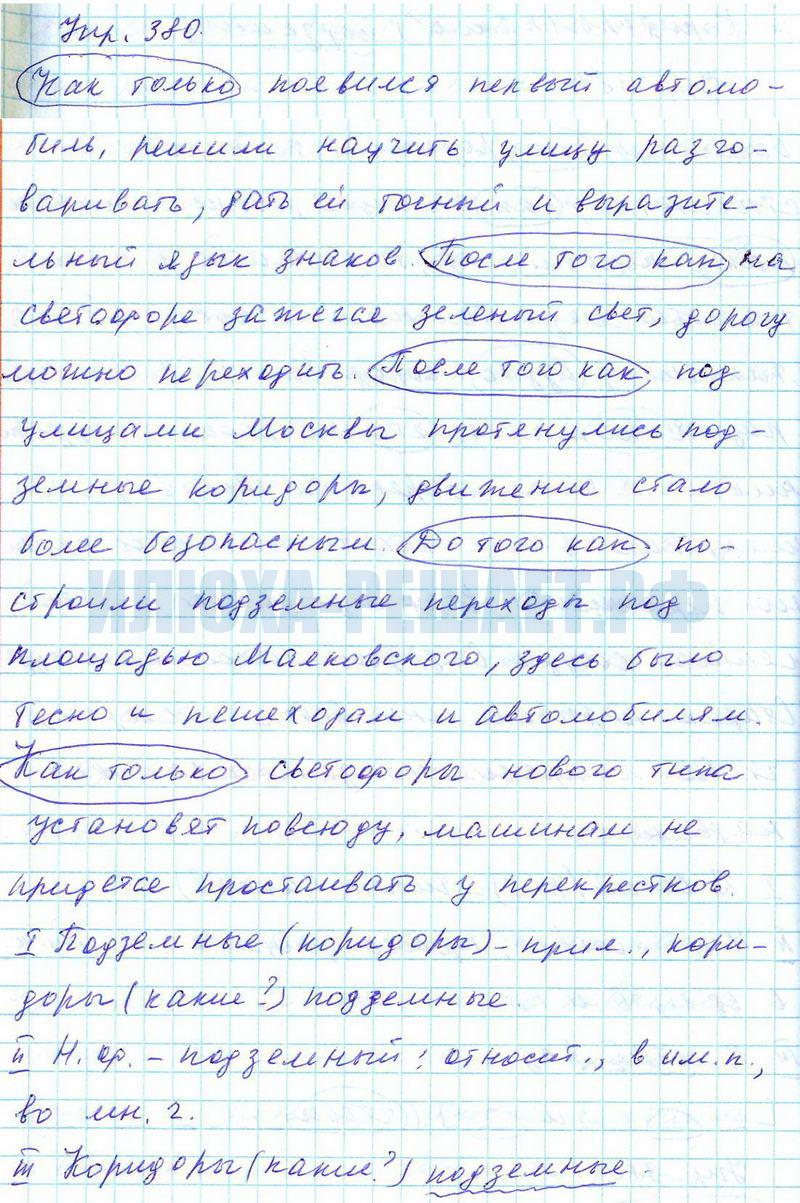 Упр. 380.
Как только появился первый автомо-
биль, решили научить улицу разго-
варивать, дать ей точный и выразите-
льный язык знаков. После того как на
светофоре зажегся зеленый свет, дорогу
можно переходить. После того как под
улицами Москвы протянулись под-
земные коридоры, движение стало
более безопасным. До того как по-
строили подземные переходы под
ИЛЮХА-РЕШАЕТ.РФ
площадью Маяковского, здесь было
тесно и пешеходам и автомобилям.
Как только светофоры нового типа
установят повсюду, машинам не
придется простаивать у перекрестков.
I Подземные (коридоры) - прил., кори-
доры (какие?) подземные.
II Н.ф. - подземный; относит., в им.п.,
во мн. ч.
III Коридоры (какие?) подземные.